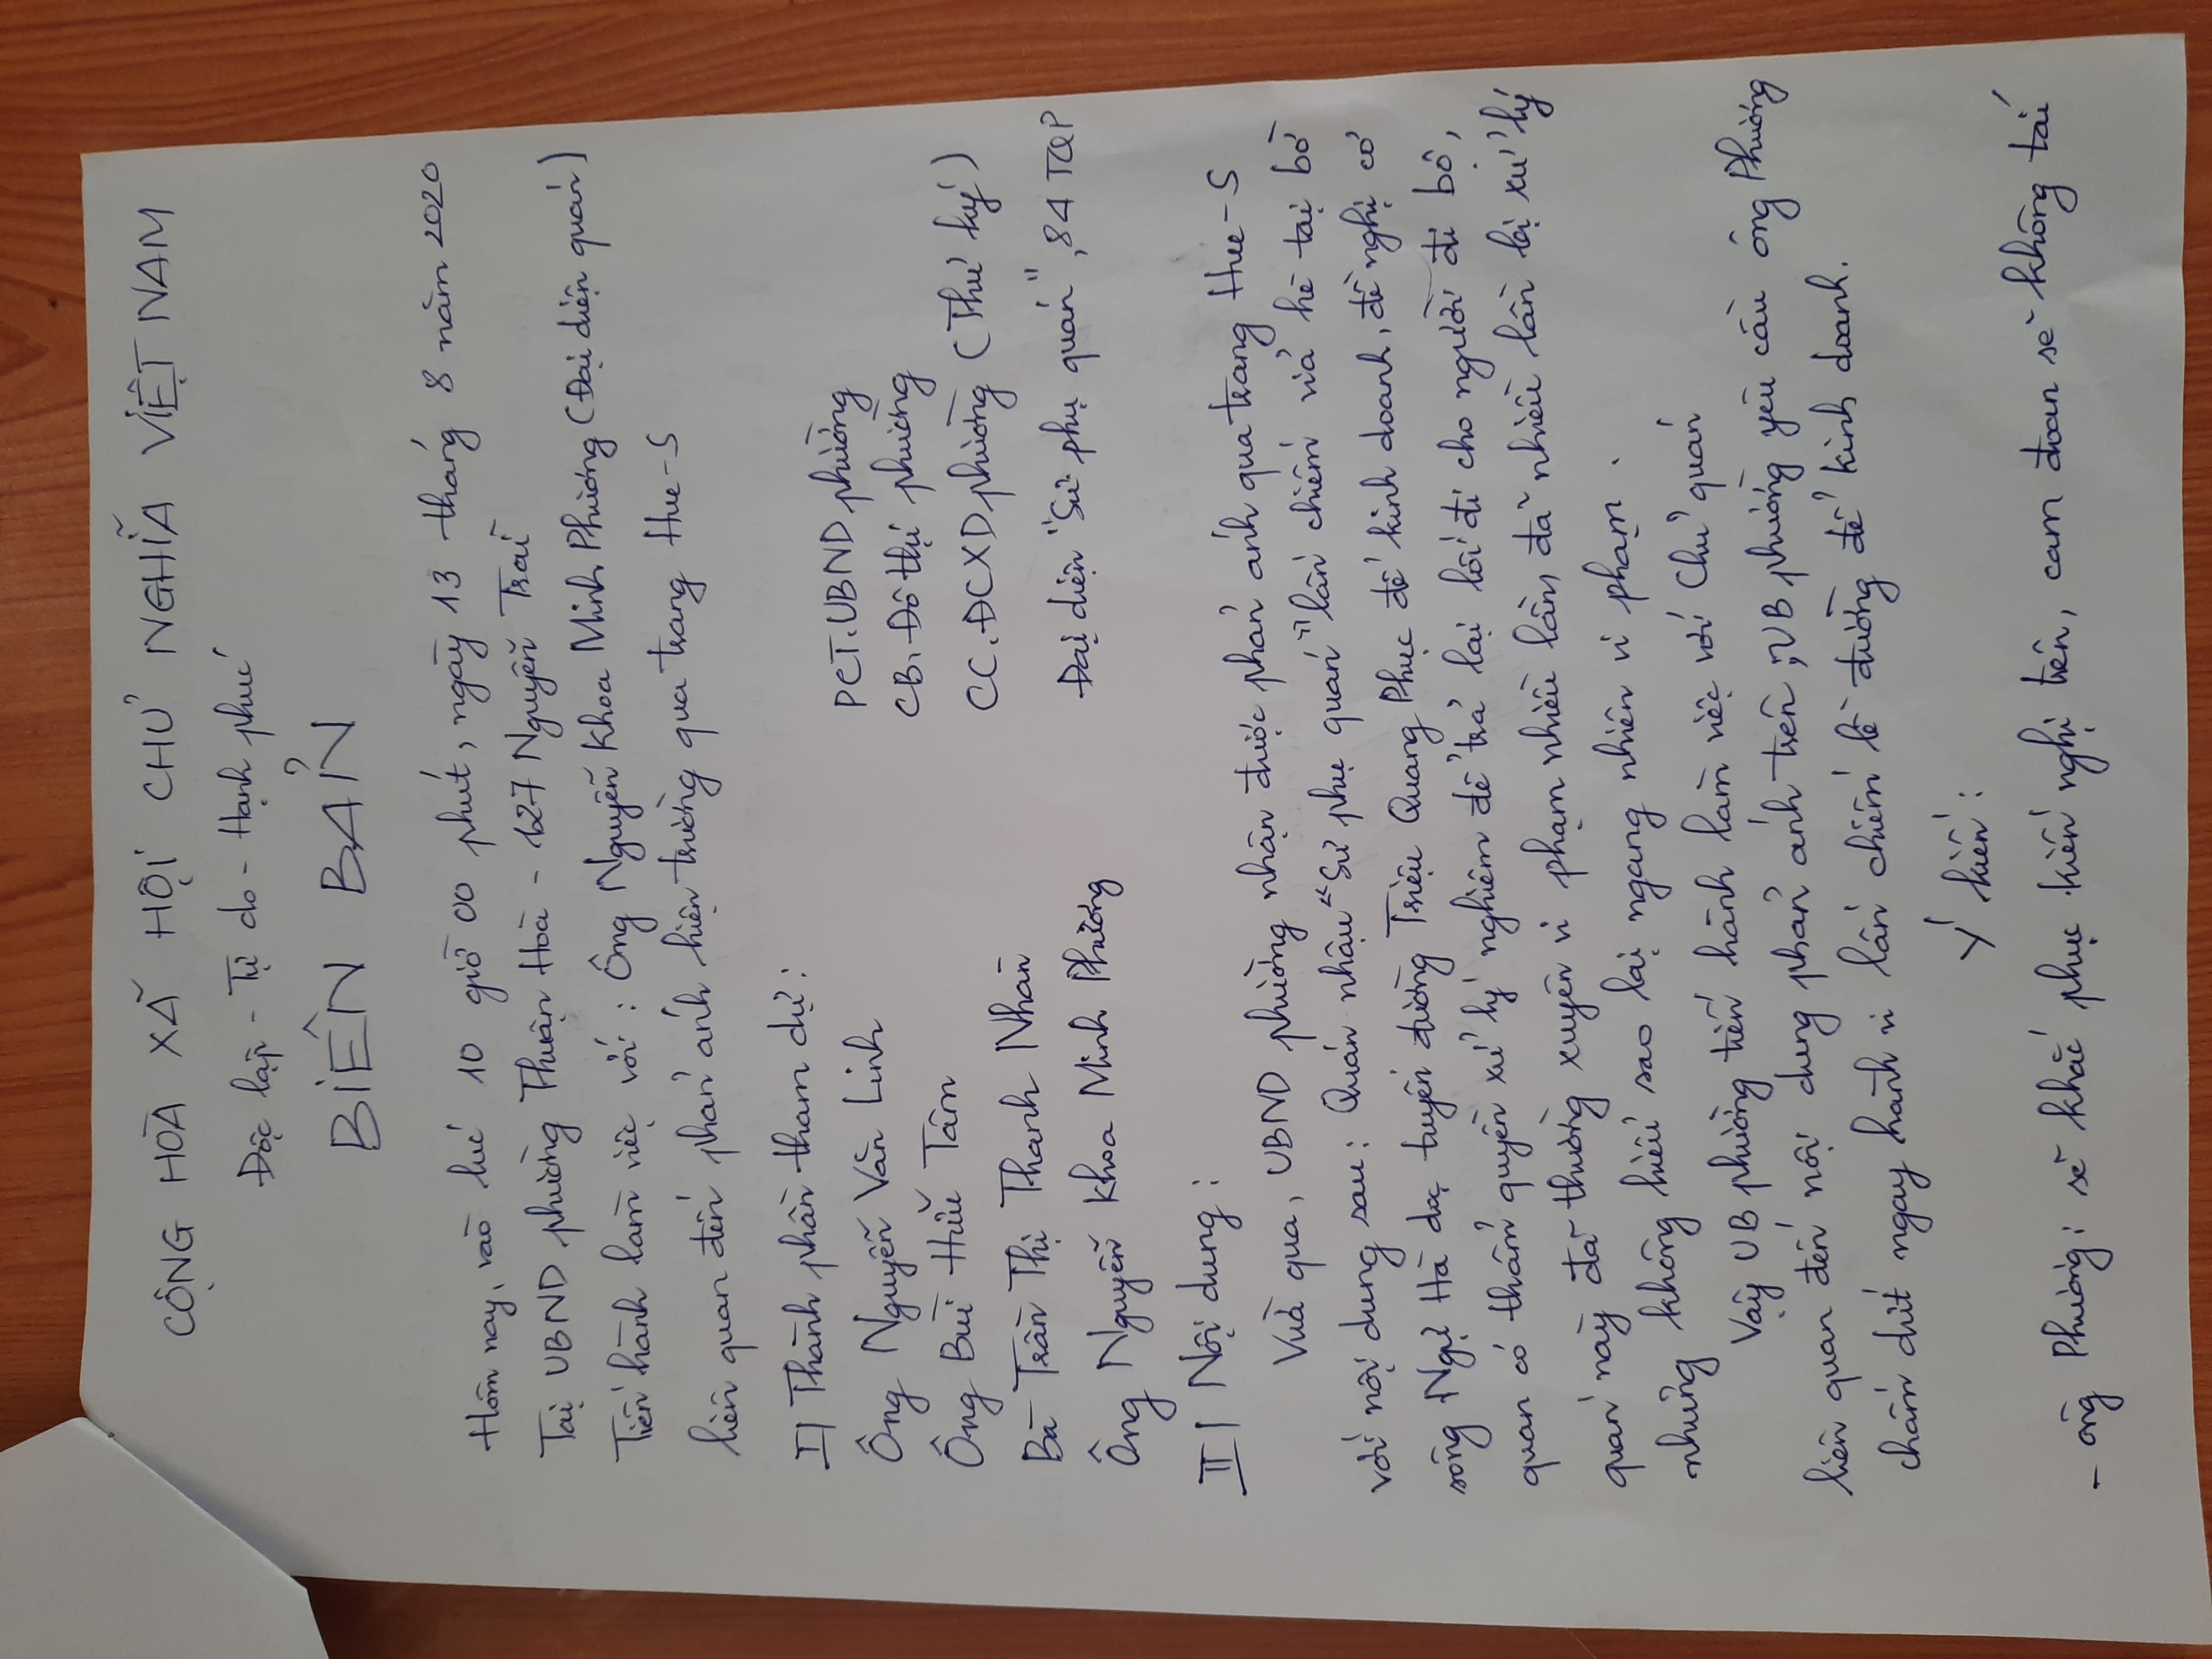 CỘNG HOÀ XÃ HỘI CHỦ NGHĨA VIỆT NAM
Độc lập - Tự do - Hạnh phúc
BIÊN BẢN
Hôm nay, vào lúc 10 giờ 00 phút, ngày 13 tháng 8 năm 2020
Tại UBND phường Thuận Hoà - 127 Nguyễn Trãi
Tiến hành làm việc với : Ông Nguyễn Khoa Minh Phương (Đại diện quán)
liên quan đến phản ánh hiện trường qua trang Hue-S
I| Thành phần tham dự :
Ông Nguyễn Văn Linh PCT.UBND phường
Ông Bùi Hữu Tâm CB. Đô thị phường
Bà Trần Thị Thanh Nhàn CC.ĐCXD phường (Thư ký)
Ông Nguyễn Khoa Minh Phương Đại diện "Sư phụ quán", 84 TQP
II| Nội dung :
Vừa qua, UBND phường nhận được phản ánh qua trang Hue-S
với nội dung sau : Quán nhậu "Sư phụ quán" lấn chiếm vỉa hè tại bờ
sông Ngự Hà dọc tuyến đường Triệu Quang Phục để kinh doanh, đề nghị cơ
quan có thẩm quyền xử lý nghiêm để trả lại lối đi cho người đi bộ,
quán này đã thường xuyên vi phạm nhiều lần, đã nhiều lần bị xử lý
nhưng không hiểu sao lại ngang nhiên vi phạm.
Vậy UB phường tiến hành làm việc với Chủ quán
liên quan đến nội dung phản ánh trên, UB phường yêu cầu ông Phương
chấm dứt ngay hành vi lấn chiếm lề đường để kinh doanh.
Ý kiến :
- ông Phương : sẽ khắc phục kiến nghị trên, cam đoan sẽ không tái